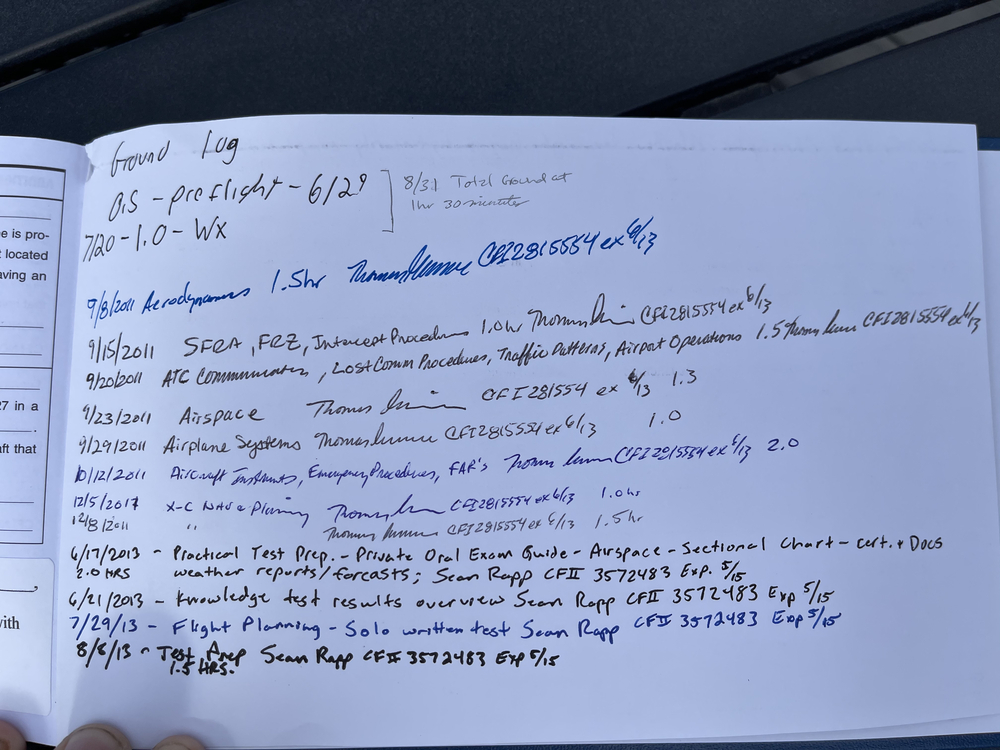 Ground Log
0.5 - preflight - 6/29
8/31 Total Ground at
1hr 30 minutes
7/20 - 1.0 - Wx
9/8/2011 Aerodynamics 1.5hr Thomas CFI2815554 ex 6/13
9/15/2011 SFRA, FRZ, Intercept Procedures 1.0hr Thomas CFI2815554 ex 6/13
9/20/2011 ATC Communications, Lost Comm Procedures, Traffic Patterns, Airport Operations 1.5 Thomas CFI2815554 ex 6/13
9/23/2011 Airspace Thomas CFI281554 ex 6/13 1.3
9/29/2011 Airplane Systems Thomas CFI2815554 ex 6/13 1.0
10/12/2011 Aircraft Instruments, Emergency Procedures, FAR's Thomas CFI2815554 ex 6/13 2.0
12/5/2011 X-C Nav & Planning Thomas CFI2815554 ex 6/13 1.0hr
12/8/2011 " Thomas CFI2815554 ex 6/13 1.5hr
6/17/2013 - Practical Test Prep. - Private Oral Exam Guide - Airspace - Sectional Chart - cert. + Docs
2.0 HRS weather reports/forcasts; Sean Rapp CFII 3572483 Exp. 5/15
6/21/2013 - Knowledge test results overview Sean Rapp CFII 3572483 Exp 5/15
7/29/13 - Flight Planning - Solo written test Sean Rapp CFII 3572483 Exp 5/15
8/6/13 - Test Prep Sean Rapp CFII 3572483 Exp 5/15
1.5 HRS.
e is pro-
located
aving an
27 in a
aft that
with